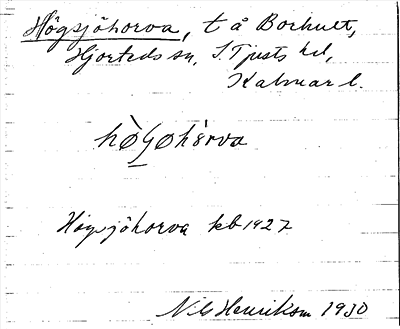 Högsjöhorva, t å Borhult,
Hjorteds sn, S. Tjusts hd,
Kalmar l.
Högsjöhorva kb 1927
Nils Henrikson 1930